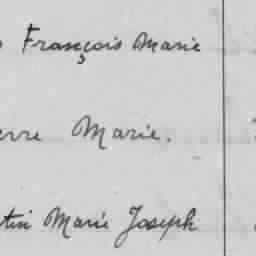 François Marie
erre Marie.
tin Marie Joseph